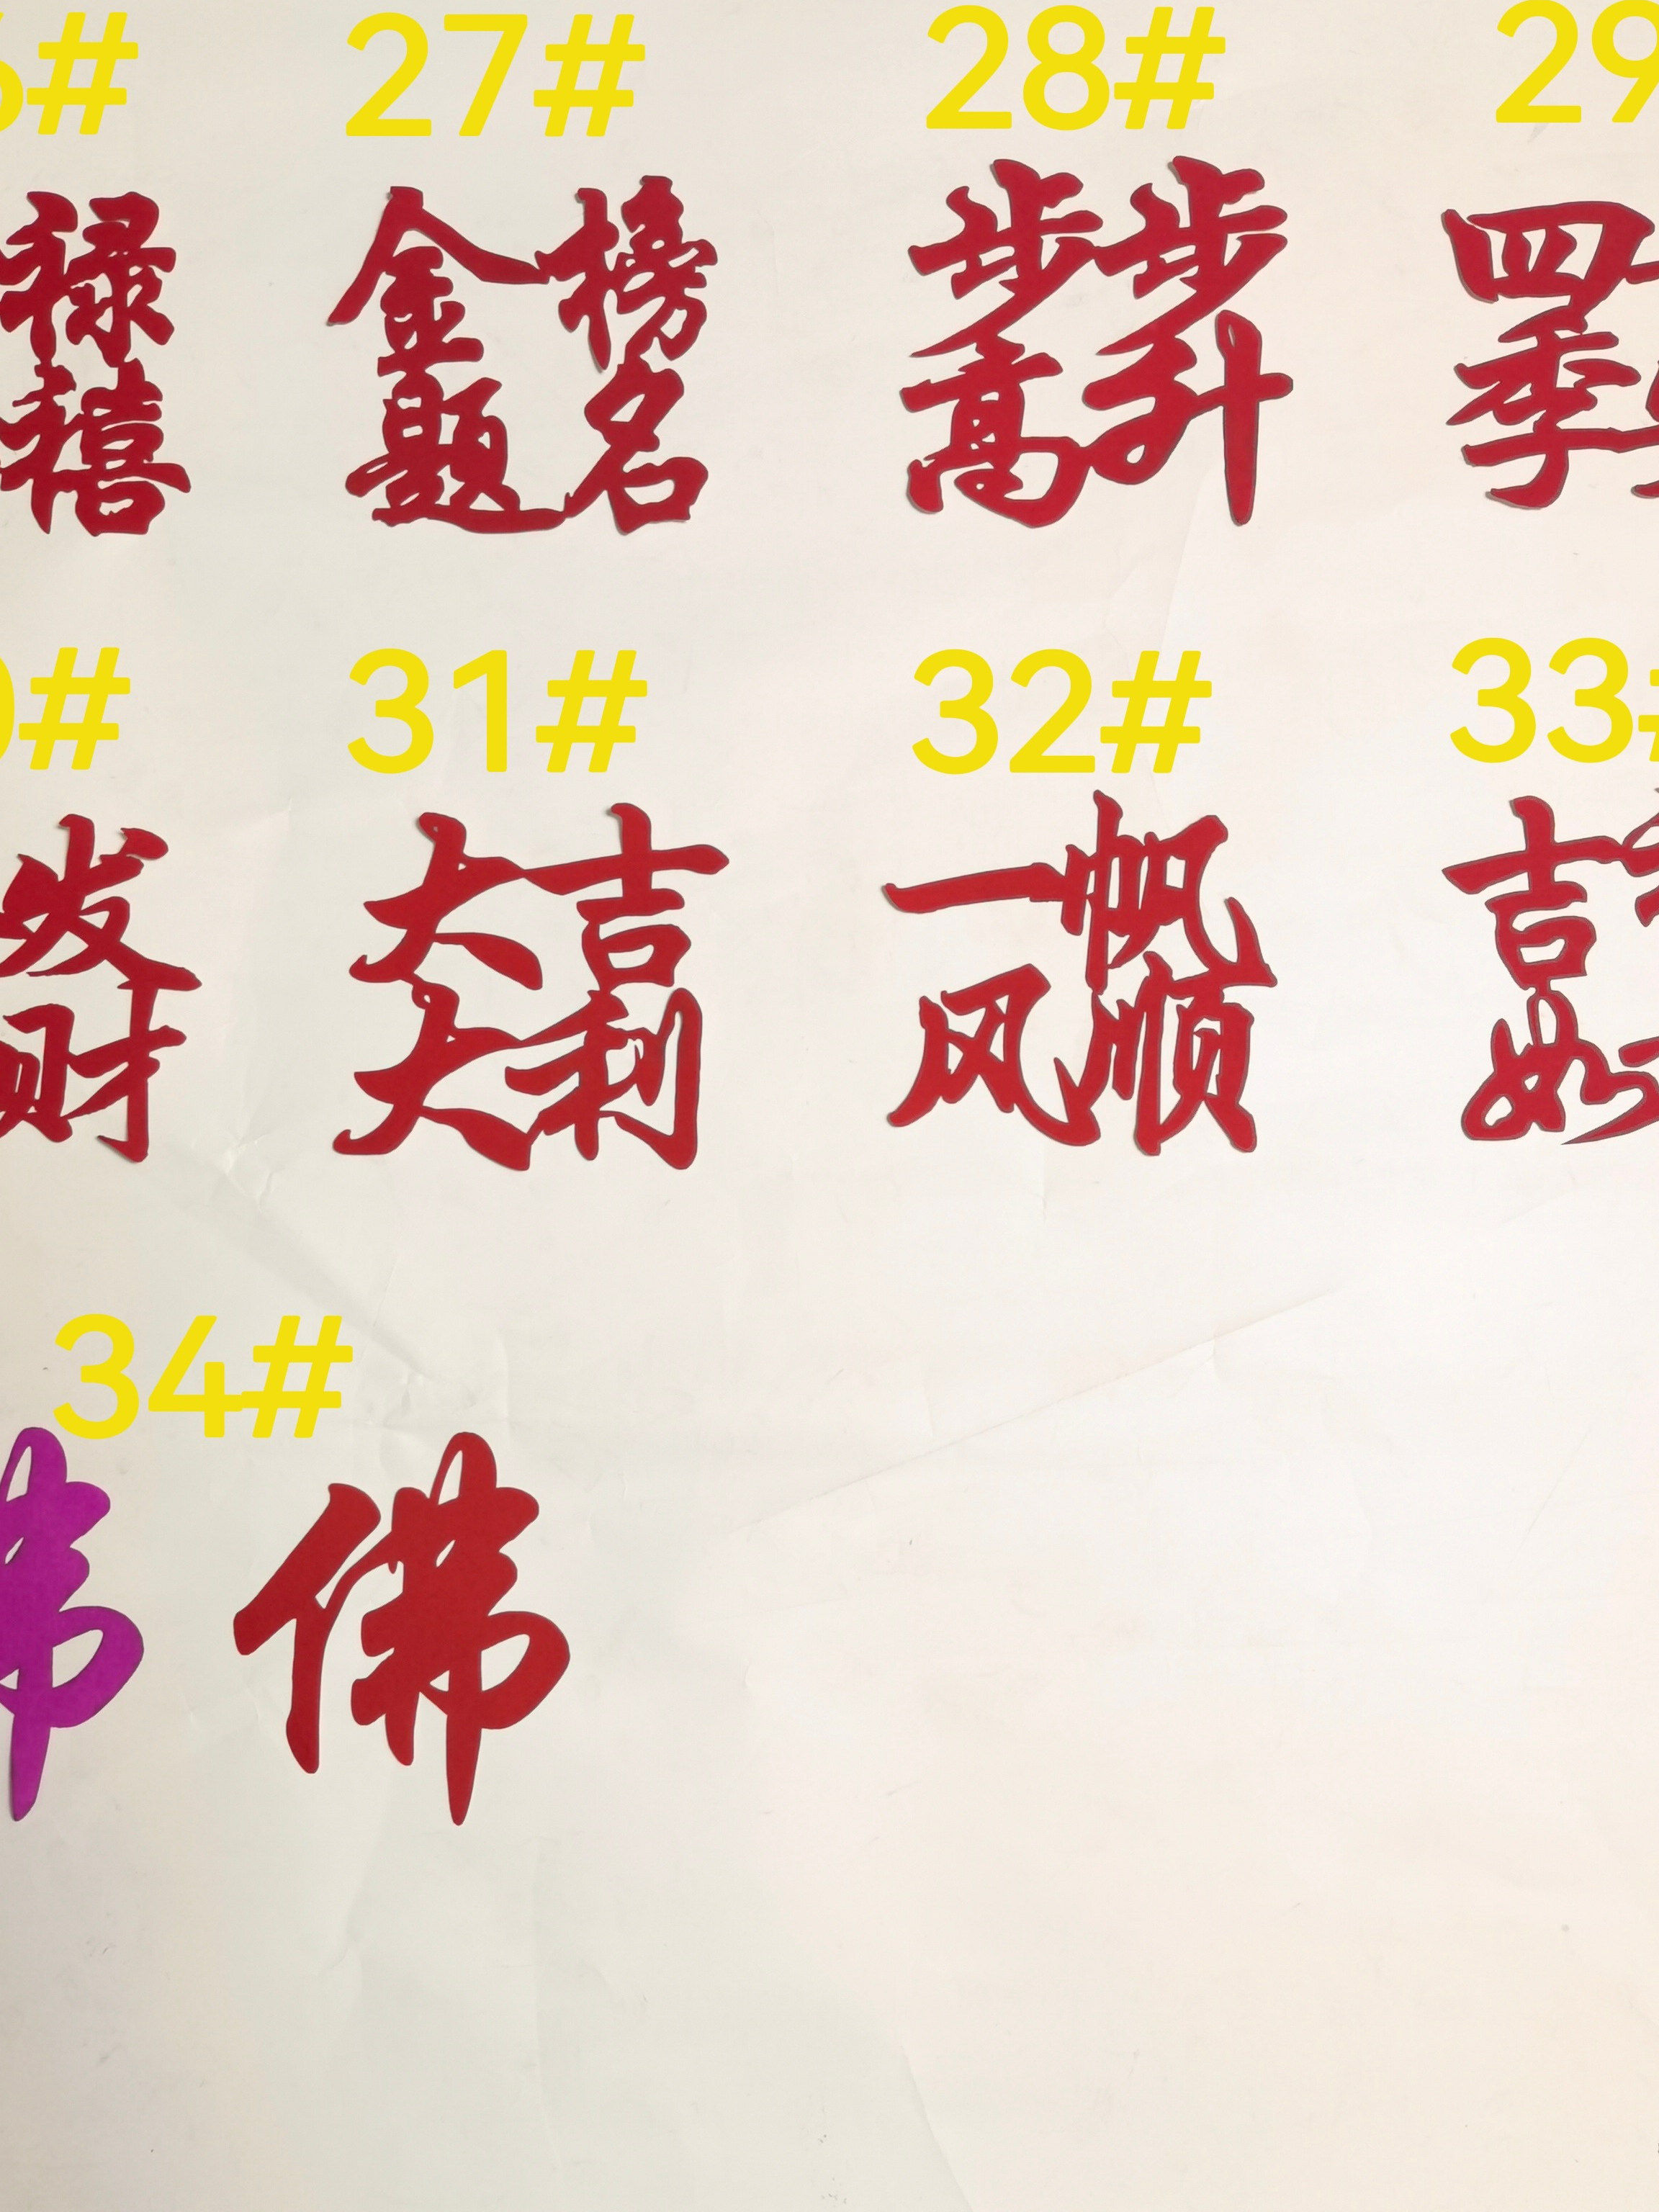 6# 27# 28# 29
禄 金榜 步步 四
禧 题名 高升 季
0# 31# 32# 33#
发 大吉 一帆 吉
财 大利 风顺 如
34#
佛